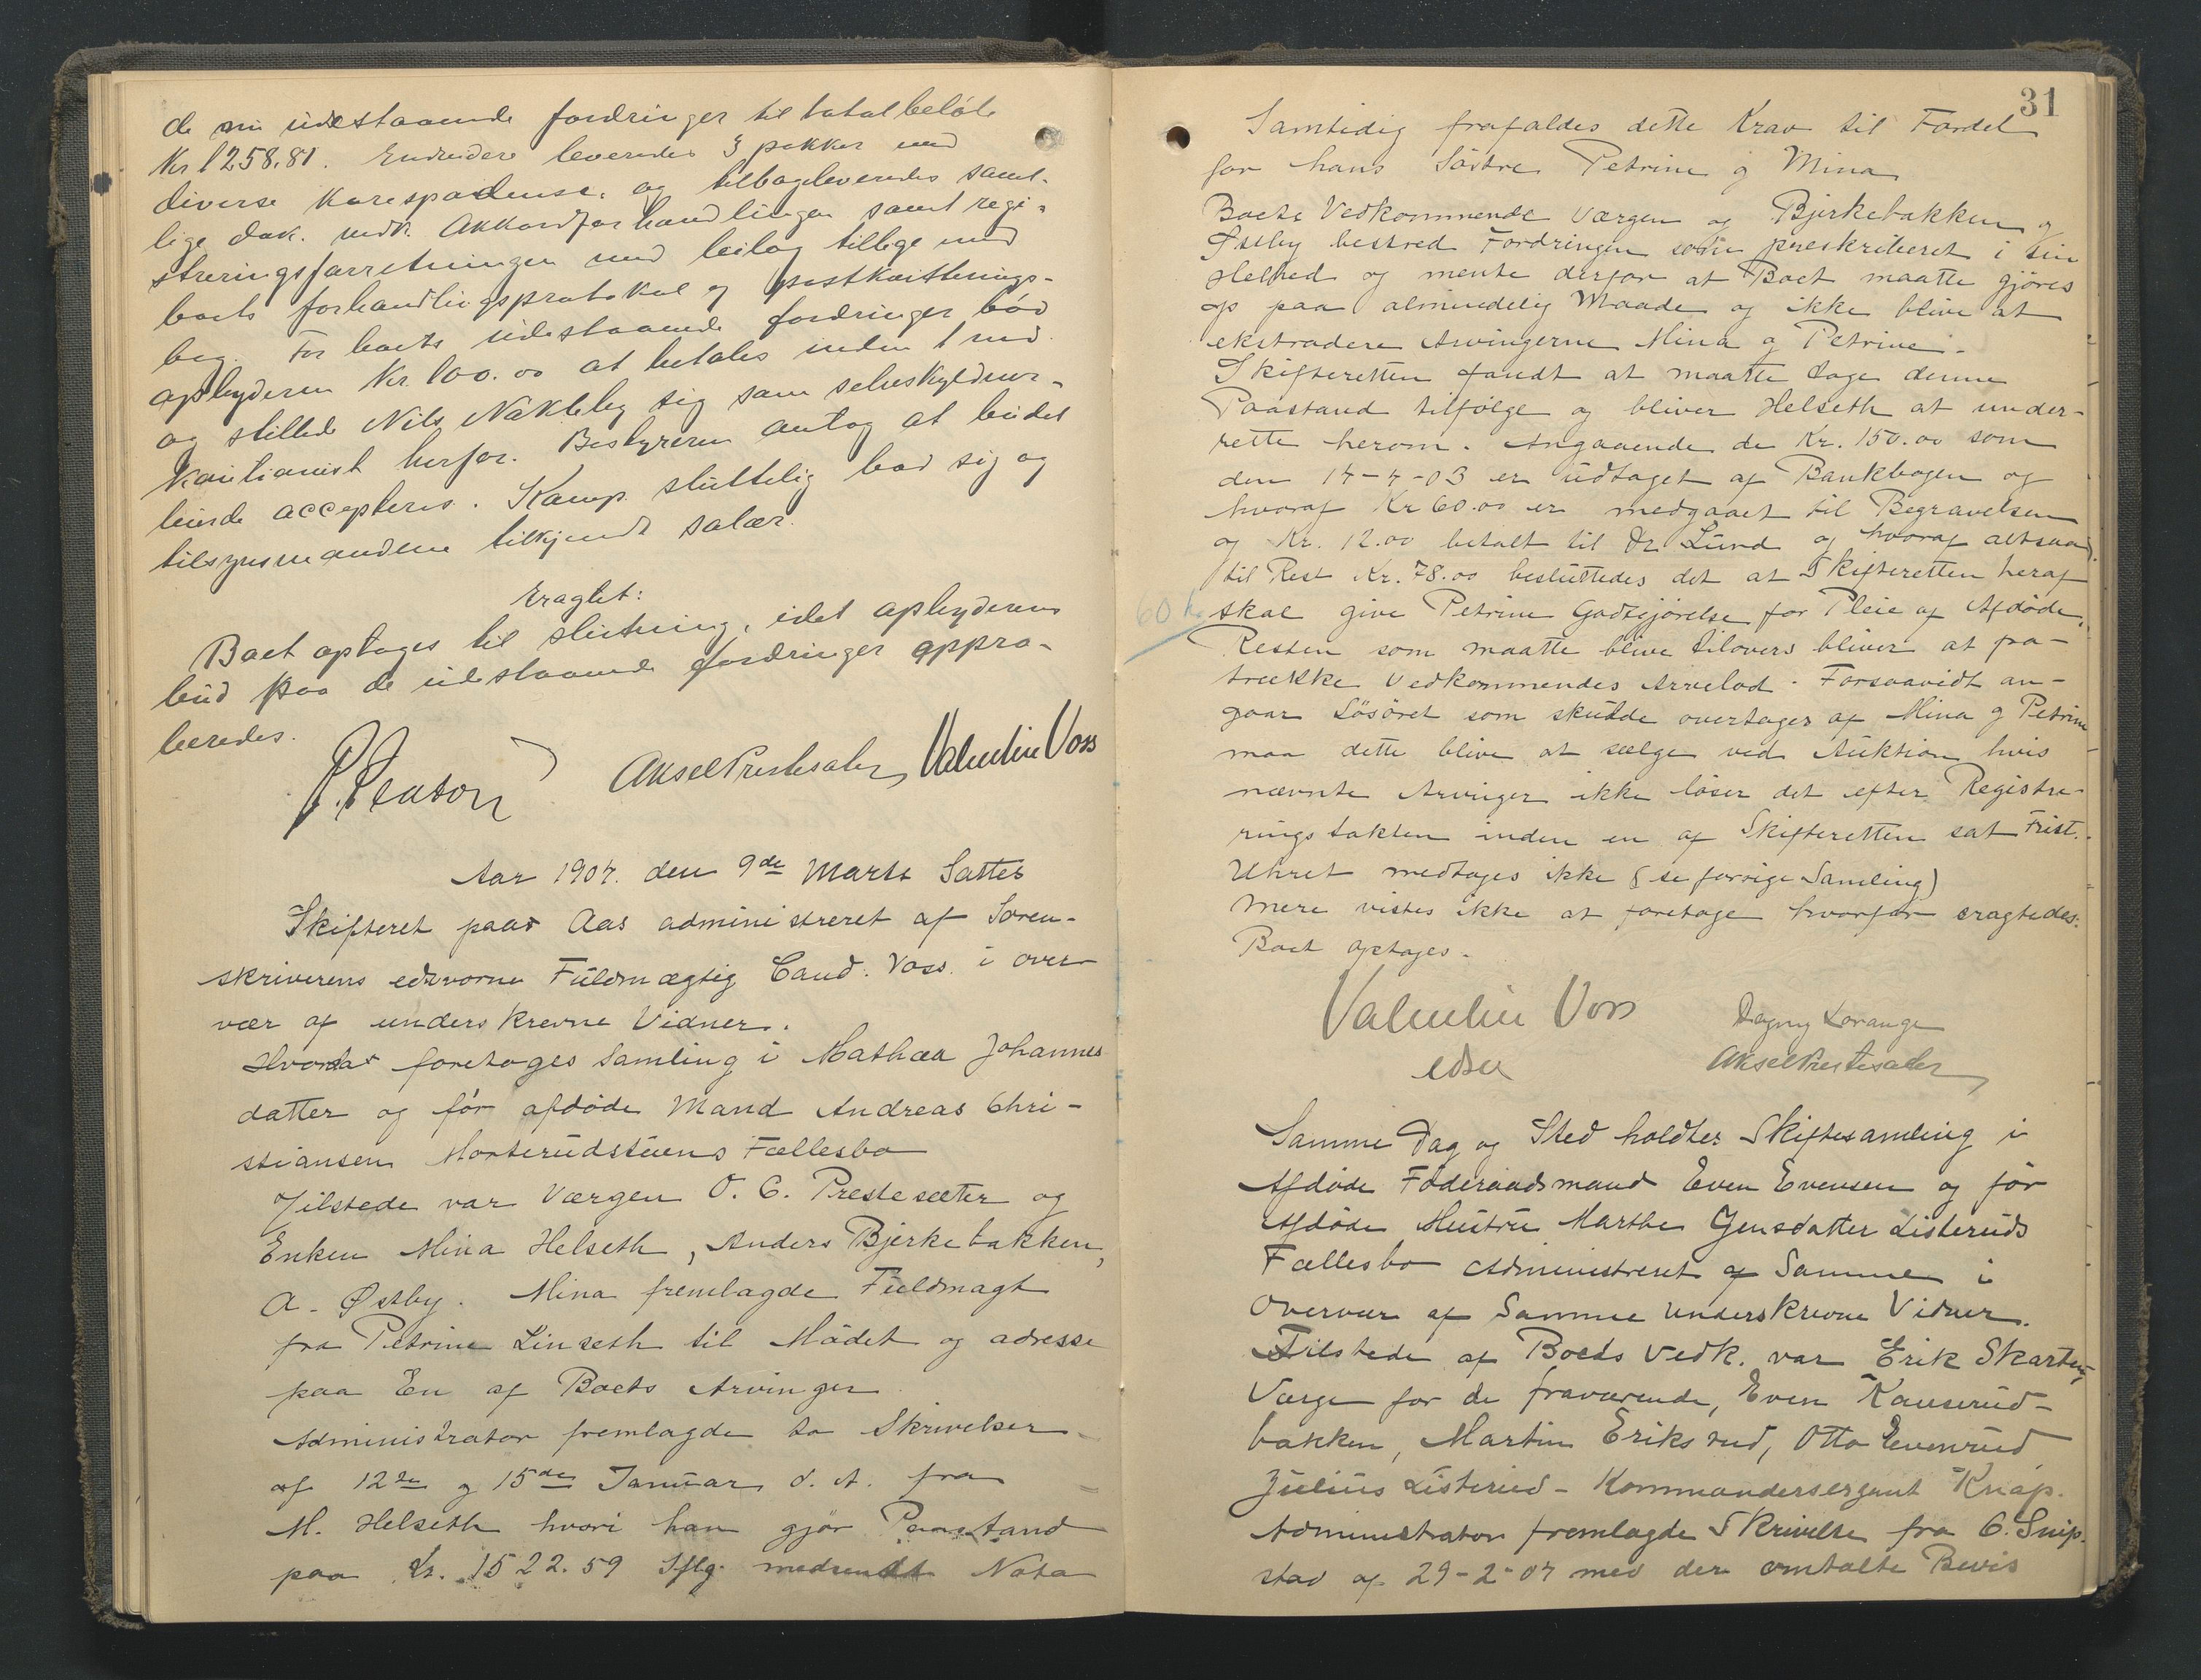 de nu udestaaende fordringer til totalbeløb
Kr 1258.81. Endvidere leveredes 3 pakker med
diverse korespodense, og tilbageleveredes samt-
lige dok. vedk. Akkordforhandlingen samt regi-
streringsforretningen med beilag tillige med
boets forhandlingsprotokol og postkvitterings-
bog. For boets udestaaende fordringer bød
opbyderen Kr. 100.00 at betales inden 1 md.
og stillede Nils Nakkleby sig som selvskyldner-
kautionist herfor. Bestyreren antog at budet
burde accepteres. Kamp sluttelig bad sig og
tilsynsmændene tilkjendt salær.
Eragtet:
Boet optages til slutning, idet opbyderens
bud paa de udestaaende fordringer appro-
beredes.
Aksel Prestesæter Valentin Voss
Aar 1904. den 9de Marts Sattes
Skifteret paa Aas administreret af Soren-
skriverens edsvorne Fuldmægtig Cand. Voss i over
vær af underskrevne Vidner.
Hvorda foretoges Samling i Mathea Johannes
datter og før afdøde Mand Andreas Chri-
stiansen Morterudstuens Fællesbo
Tilstede var Værgen O. C. Prestesæter og
Enken Mina Helseth, Anders Bjerkebakken,
A. Østby. Mina fremlagde Fuldmagt
fra Petrine Linseth til Mødet og adresse
paa En af Boets Arvinger
Administrator fremlagde to Skrivelser
af 12te og 15de Januar d. A. fra
M. Helseth hvori han gjør Paastand
paa Kr. 1522.59 Iflg. medsendt Nota
31
Samtidig frafaldes dette Krav til Fordel
for hans Søstre Petrine og Mina
Boets Vedkommende Værgen og Bjerkebakken og
Østby bestred Fordringen som preskriberet i sin
Helhed og mente derfor at Boet maatte gjøres
op paa almindelig Maade og ikke blive at
ekstradere Arvingerne Mina og Petrine.
Skifteretten fandt at maatte tage denne
Paastand tilfølge og bliver Helseth at under-
rette herom. Angaaende de Kr. 150.00 som
den 14-4-03 er udtaget af Bankbogen og
hvoraf Kr 60.00 er medgaaet til Begravelsen
og Kr. 12.00 betalt til Dr. Lund og hvoraf altsaa
til Rest Kr. 78.00 besluttedes det at Skifteretten heraf
60 k. skal give Petrine Godtgjørelse for Pleie af Afdøde,
Resten som maatte blive tilovers bliver at fra-
trække Vedkommendes Arvelod. Forsaavidt an-
gaar Løsøret som skulde overtages af Mina og Petrine
maa dette blive at sælge ved Auktion hvis
nævnte Arvinger ikke løser det efter Registre-
ringstakten inden en af Skifteretten sat Frist.
Uhret medtages ikke (se forrige Samling)
Mere vistes ikke at foretage hvorfor eragtedes:
Boet optages.
Valentin Voss Dagny Lorange
edsv Aksel Prestesæter
Samme Dag og Sted holdtes Skiftesamling i
Afdøde Føderaadsmand Even Evensen og før
Afdøde Hustru Marthe Jensdatter Listeruds
Fællesbo Administreret af Samme i
Overvær af Samme underskrevne Vidner.
Tilstede af Boets Vedk. var Erik Skarten,
Værge for de fraværende, Even Kauserud-
bakken, Martin Eriksrud, Otto Evenrud
Julius Listerud - Kommandersergant Knap.
Administrator fremlagde Skrivelse fra C. Snip-
stad af 29-2-04 med den omtalte Bevis